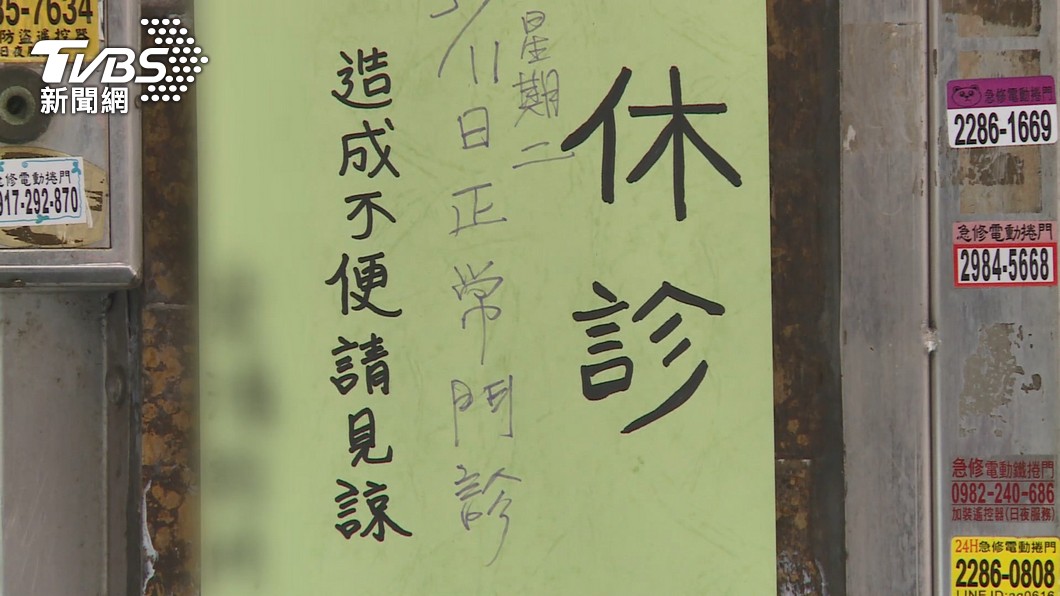 休診
星期二
/11日正常門診
造成不便請見諒
TVBS
新聞網
35-7634
防盜遙控器
修電動捲門
917-292-870
急修電動捲門
2286-1669
急修電動捲門
2984-5668
急修電動鐵捲門
0982-240-686
加裝遙控器(日夜服務)
24H急修電動捲門
2286-0808
LINE ID: